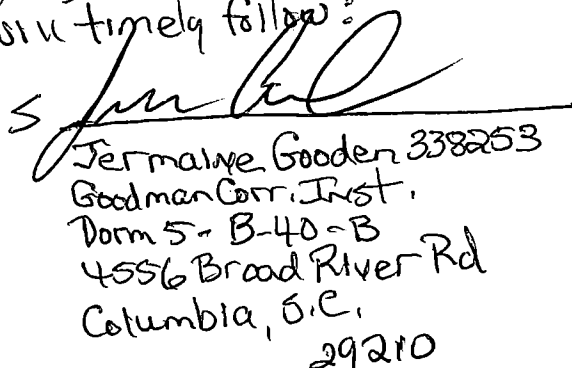 timely follow:
S
Jermaine Gooden 338253
Goodman Corr. Inst.
Dorm 5- B-40-B
4556 Broad River Rd
Columbia, S.C.
29210